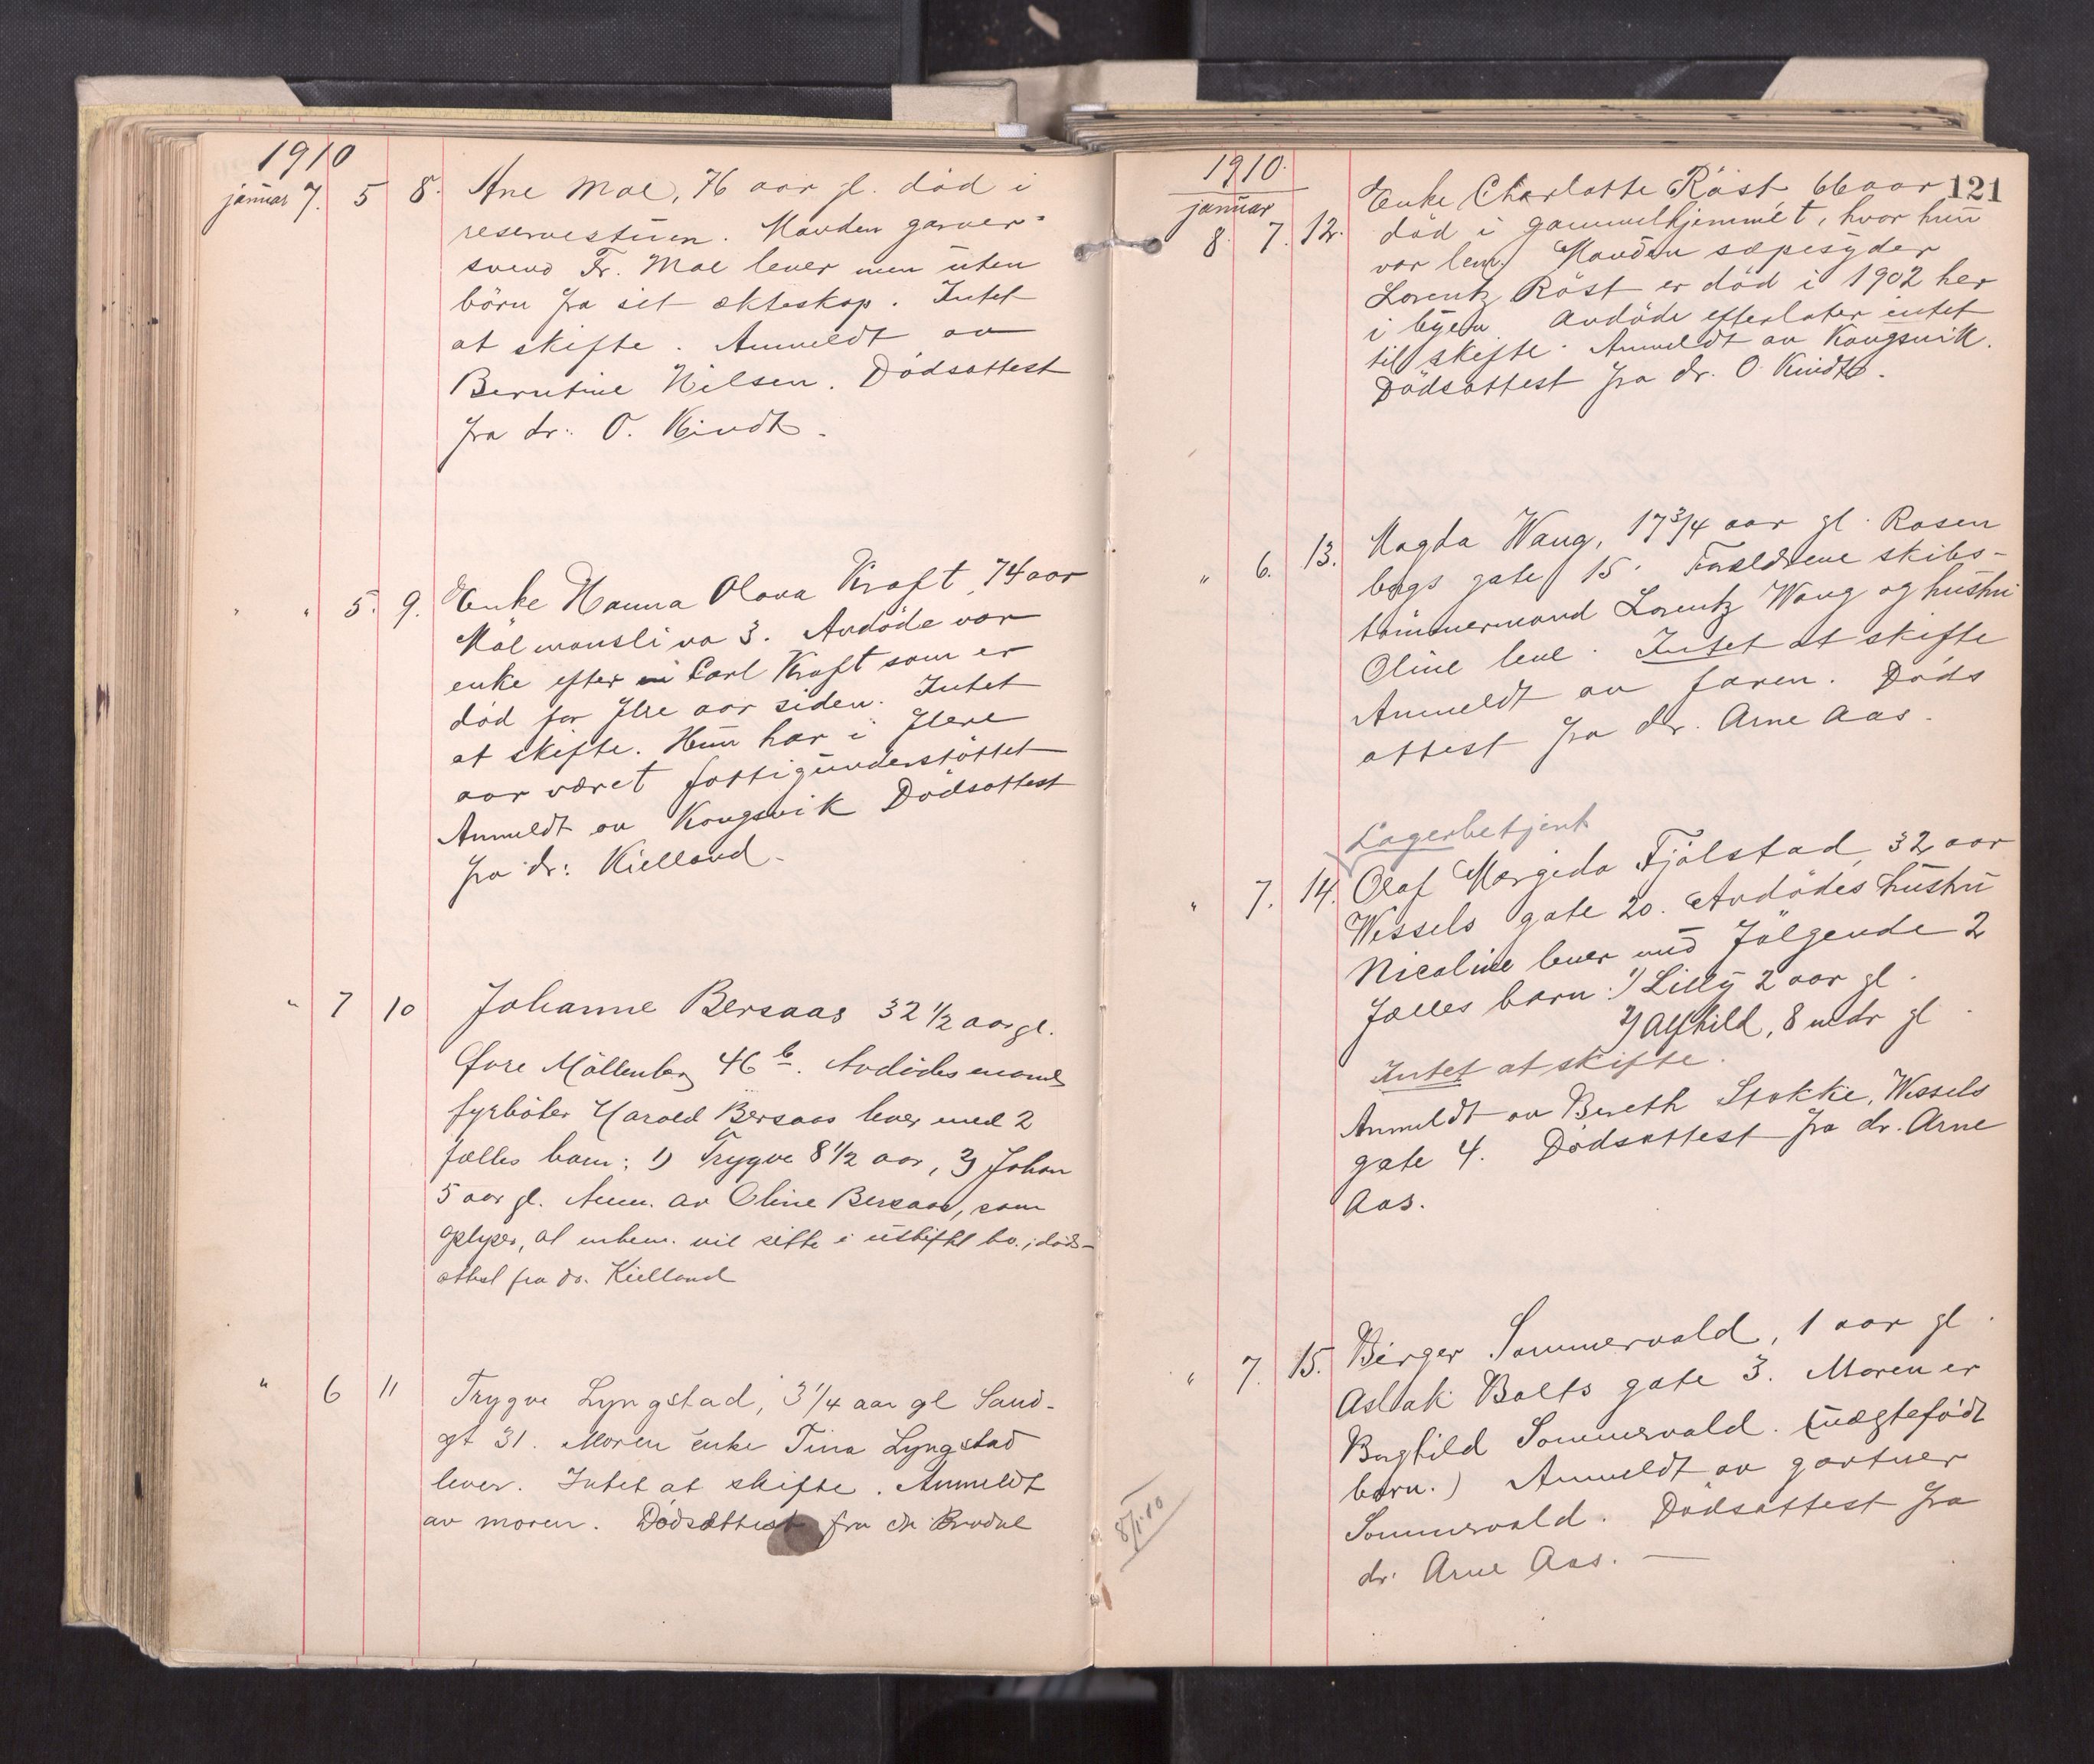 1910
januar 7. 5 8. Ane Moe, 76 aar gl. död i
reservestuen. Manden garver-
svend Fr. Moe lever men uten
börn fra sit ekteskap. Intet
at skifte. Anmeldt av
Berntine Nilsen. Dödsattest
fra dr. O. Kindt.
" " 5. 9. Enke Hanna Olava Kraft, 74 aar
Målmansli va 3. Avdöde var
enke efter Carl Kraft som er
död for flre aar siden. Intet
at skifte. Hun har i flere
aar været fattigunderstöttet
Anmeldt av Kongsvik Dödsattest
fra dr: Kielland.
" 7 10 Johanne Bersaas 32 1/2 aar gl.
Övre Möllenberg 46 b. Avdödes mand
fyrböter Harald Bersaas lever med 2
fælles barn: 1) Trygve 8 1/2 aar, 2) Johan
5 aar gl. Anm. av Oline Bersaas, som
oplyser, at enkem. vil sitte i uskiftet bo.; döds-
attest fra dr. Kielland
" 6 11 Trygve Lyngstad, 3 1/4 aar gl Sand-
gt 31. Moren enke Tina Lyngstad
lever. Intet at skifte. Anmeldt
av moren. Dödsattest fra dr
1910.
121
januar
8. 7. 12. Enke Charlotte Röst 66 aar
död i gammelhjemmet, hvor hun
var lem. Manden sæpesyder
Lorentz Röst er död i 1902 her
i byen. Avdöde efterlater intet
til skifte. Anmeldt av Kongsvik.
Dödsattest fra dr. O. Kindt.
" 6. 13. Magda Wang, 17 3/4 aar gl. Rosen
bogs gate 15. Forældrene skibs-
tömmermand Lorentz Wang og hustru
Oline leve. Intet at skifte
Anmeldt av faren. Döds
attest fra dr. Arne Aas.
Lagerbetjent
" 7. 14. Olaf Margido Fjölstad, 32 aar
Wessels gate 20. Avdödes hustru
Nicoline lever med fölgende 2
fælles barn: 1) Lilly 2 aar gl.
2) Alfhild, 8 mdr gl.
Intet at skifte.
Anmeldt av Bereth Stokke, Wessels
gate 4. Dödsattest fra dr. Arne
Aas.
" 7. 15. Birger Sommervold, 1 aar gl.
Aslak Bolts gate 3. Moren er
Borghild Sommervold. (uægtefödt
barn.) Anmeldt av gartner
Sommervold. Dödsattest fra
dr. Arne Aas. —
8/1 10